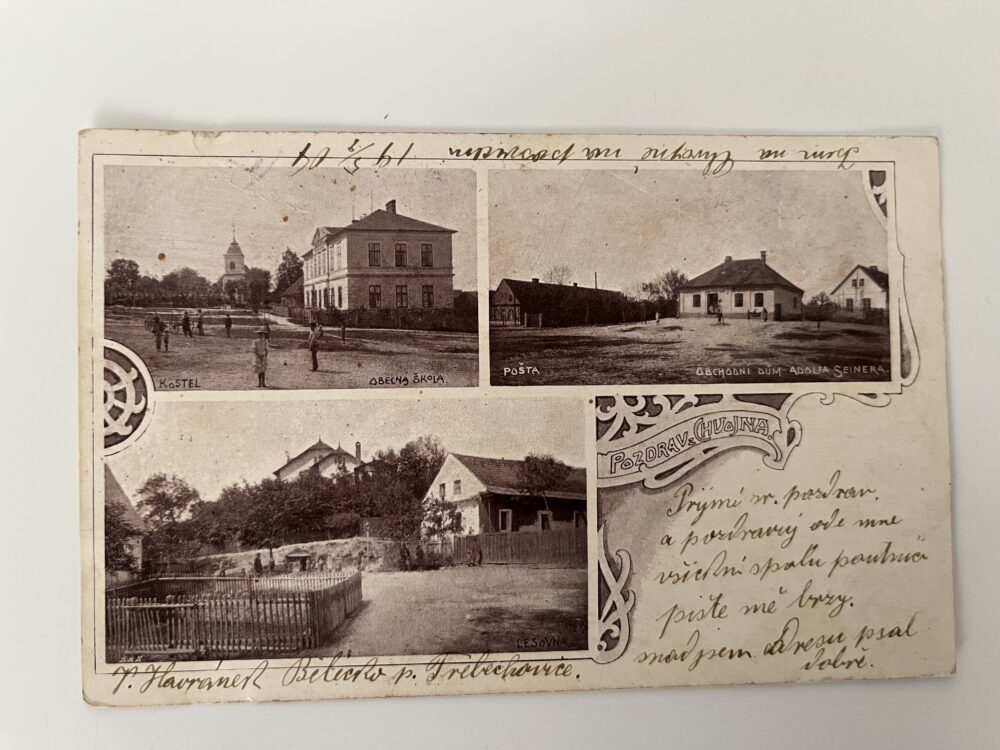 19 5/7 04
KOSTEL
OBECNÁ ŠKOLA.
POŠTA
OBCHODNÍ DŮM ADOLFA SEINERA.
POZDRAV z CHVOJNA.
LESOVNA
Prýmí sr. pozdrav.
a pozdravuj ode mne
všeckni spolu
pište mě brzy.
snad jsem adresu psal
dobře.
Havránek Bělečko p. Třebechovice.